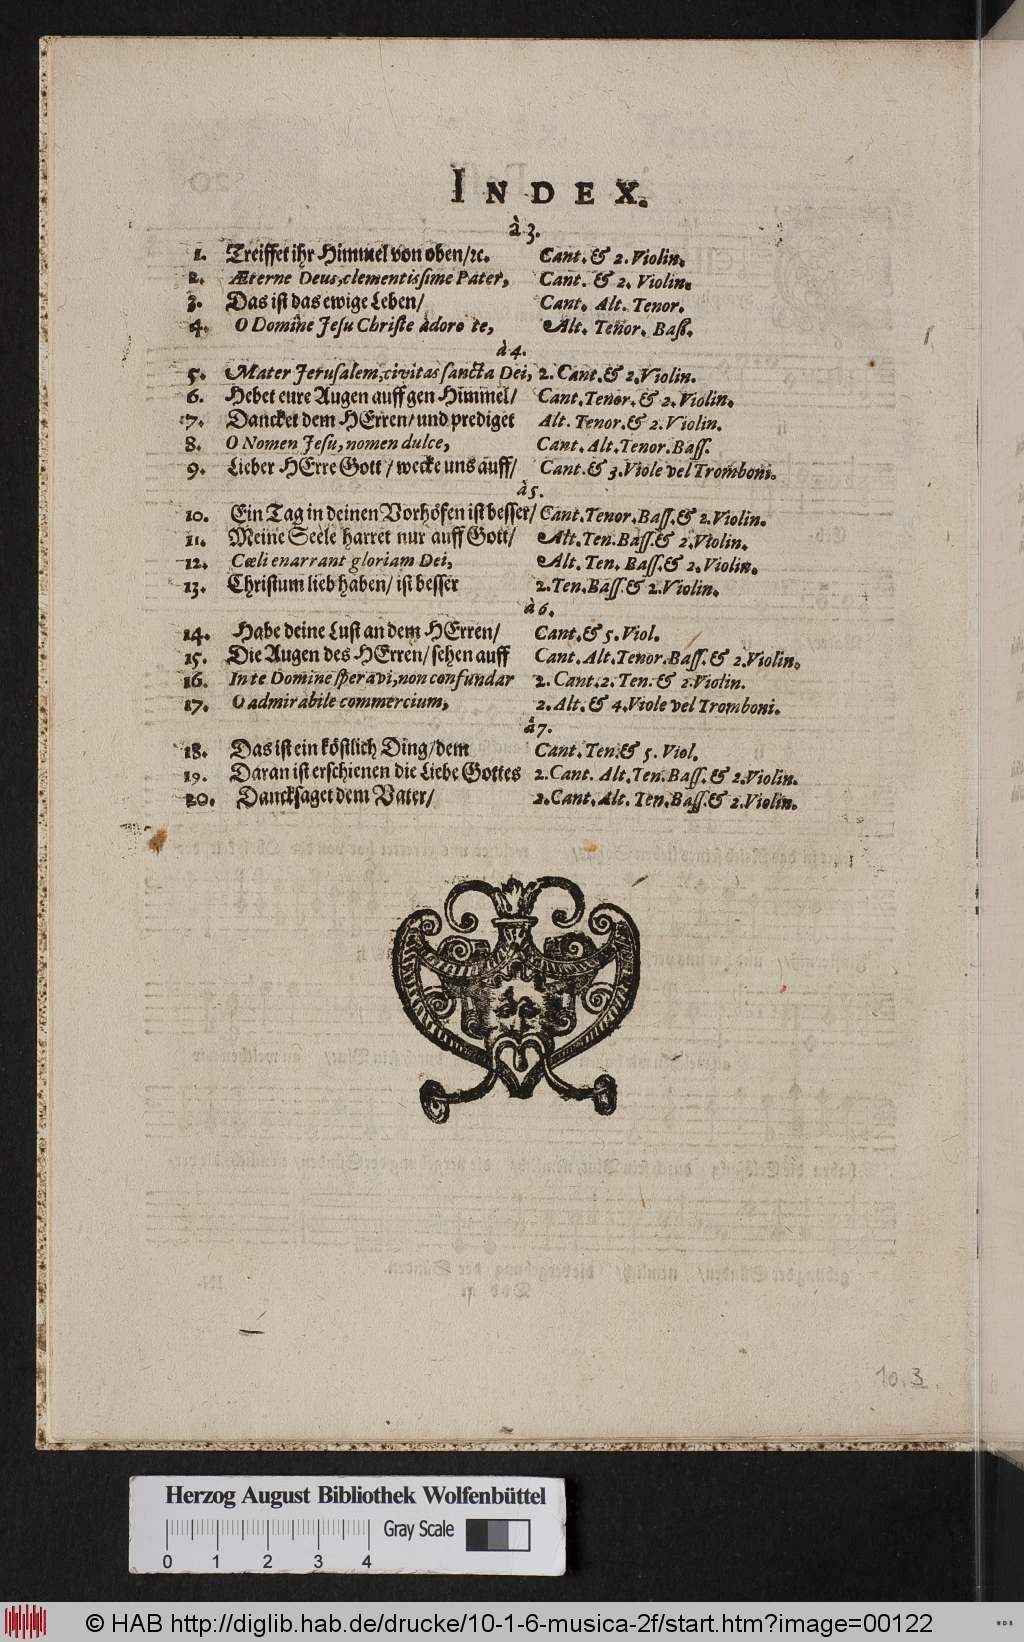 INDEX.
à 3.
1. Treiffet ihr Himmel von oben/ꝛc. Cant. & 2. Violin.
2. Æterne Deus, clementissime Pater, Cant. & 2. Violin.
3. Das ist das ewige Leben/ Cant. Alt. Tenor.
4. O Domine Jesu Christe adoro te, Alt. Tenor. Baß.
à 4.
5. Mater Jerusalem, civitas sancta Dei, 2. Cant. & 2. Violin.
6. Hebet eure Augen auff gen Himmel/ Cant. Tenor. & 2. Violin.
7. Dancket dem HErren/ und prediget Alt. Tenor. & 2. Violin.
8. O Nomen Jesu, nomen dulce, Cant. Alt. Tenor. Bass.
9. Lieber HErre Gott/ wecke uns auff/ Cant. & 3. Viole vel Tromboni.
à 5.
10. Ein Tag in deinen Vorhöfen ist besser/ Cant. Tenor. Bass. & 2. Violin.
11. Meine Seele harret nur auff Gott/ Alt. Ten. Bass. & 2. Violin.
12. Cœli enarrant gloriam Dei, Alt. Ten. Bass. & 2. Violin.
13. Christum lieb haben/ ist besser 2. Ten. Bass. & 2. Violin.
à 6.
14. Habe deine Lust an dem HErren/ Cant. & 5. Viol.
15. Die Augen des HErren/ sehen auff Cant. Alt. Tenor. Bass. & 2. Violin.
16. In te Domine speravi, non confundar 2. Cant. 2. Ten. & 2. Violin.
17. O admirabile commercium, 2. Alt. & 4. Viole vel Tromboni.
à 7.
18. Das ist ein köstlich Ding/ dem Cant. Ten. & 5. Viol.
19. Daran ist erschienen die Liebe Gottes 2. Cant. Alt. Ten. Bass. & 2. Violin.
20. Dancksaget dem Vater/ 2. Cant. Alt. Ten. Bass. & 2. Violin.
10.3.
Herzog August Bibliothek Wolfenbüttel
Gray Scale
0 1 2 3 4
© HAB http://diglib.hab.de/drucke/10-1-6-musica-2f/start.htm?image=00122